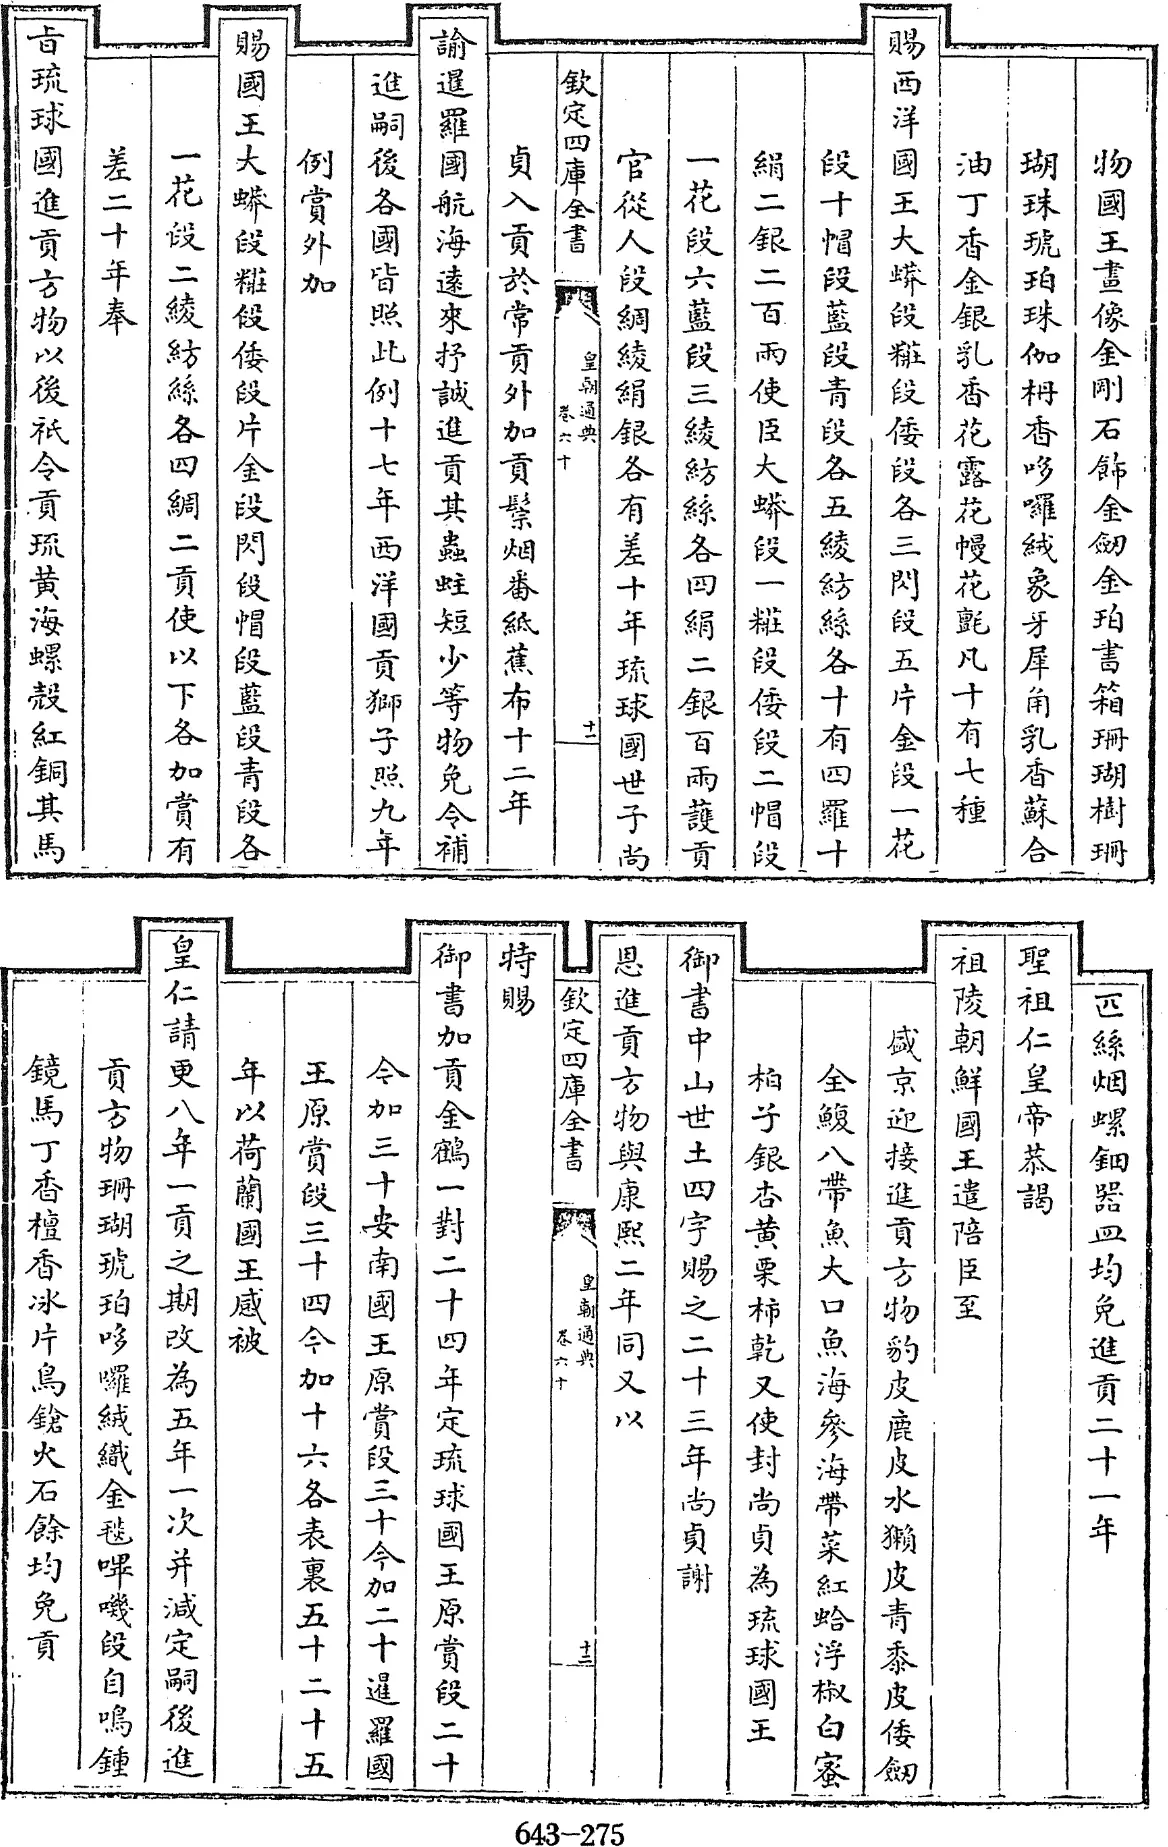 物國王畫像金剛石飾金劒金珀書箱珊瑚樹珊
瑚珠琥珀珠伽枏香哆囉絨象牙犀角乳香蘇合
油丁香金銀乳香花露花幔花氈凡十有七種
賜西洋國王大蟒段糚段倭段各三閃段五片金段一花
段十帽段藍段青段各五綾紡絲各十有四羅十
絹二銀二百兩使臣大蟒段一糚段倭段二帽段
一花段六藍段三綾紡絲各四絹二銀百兩護貢
官從人段綢綾絹銀各有差十年琉球國世子尚
欽定四庫全書
皇朝通典
卷六十
十二
貞入貢於常貢外加貢鬃烟番紙蕉布十二年
諭暹羅國航海遠來抒誠進貢其蟲蛀短少等物免令補
進嗣後各國皆照此例十七年西洋國貢獅子照九年
例賞外加
賜國王大蟒段糚段倭段片金段閃段帽段藍段青段各
一花段二綾紡絲各四綢二貢使以下各加賞有
差二十年奉
旨琉球國進貢方物以後祇令貢琉黃海螺殼紅銅其馬
匹絲烟螺鈿器皿均免進貢二十一年
聖祖仁皇帝恭謁
祖陵朝鮮國王遣陪臣至
盛京迎接進貢方物豹皮鹿皮水獺皮青黍皮倭劒
全鰒八帶魚大口魚海參海帶菜紅蛤浮椒白蜜
柏子銀杏黃栗柿乾又使封尚貞為琉球國王
御書中山世土四字賜之二十三年尚貞謝
恩進貢方物與康熙二年同又以
欽定四庫全書
皇朝通典
卷六十
十三
特賜
御書加貢金鶴一對二十四年定琉球國王原賞段二十
令加三十安南國王原賞段三十今加二十暹羅國
王原賞段三十四今加十六各表裏五十二十五
年以荷蘭國王感被
皇仁請更八年一貢之期改為五年一次并減定嗣後進
貢方物珊瑚琥珀哆囉絨織金毯嗶嘰段自鳴鍾
鏡馬丁香檀香冰片鳥鎗火石餘均免貢
643-275